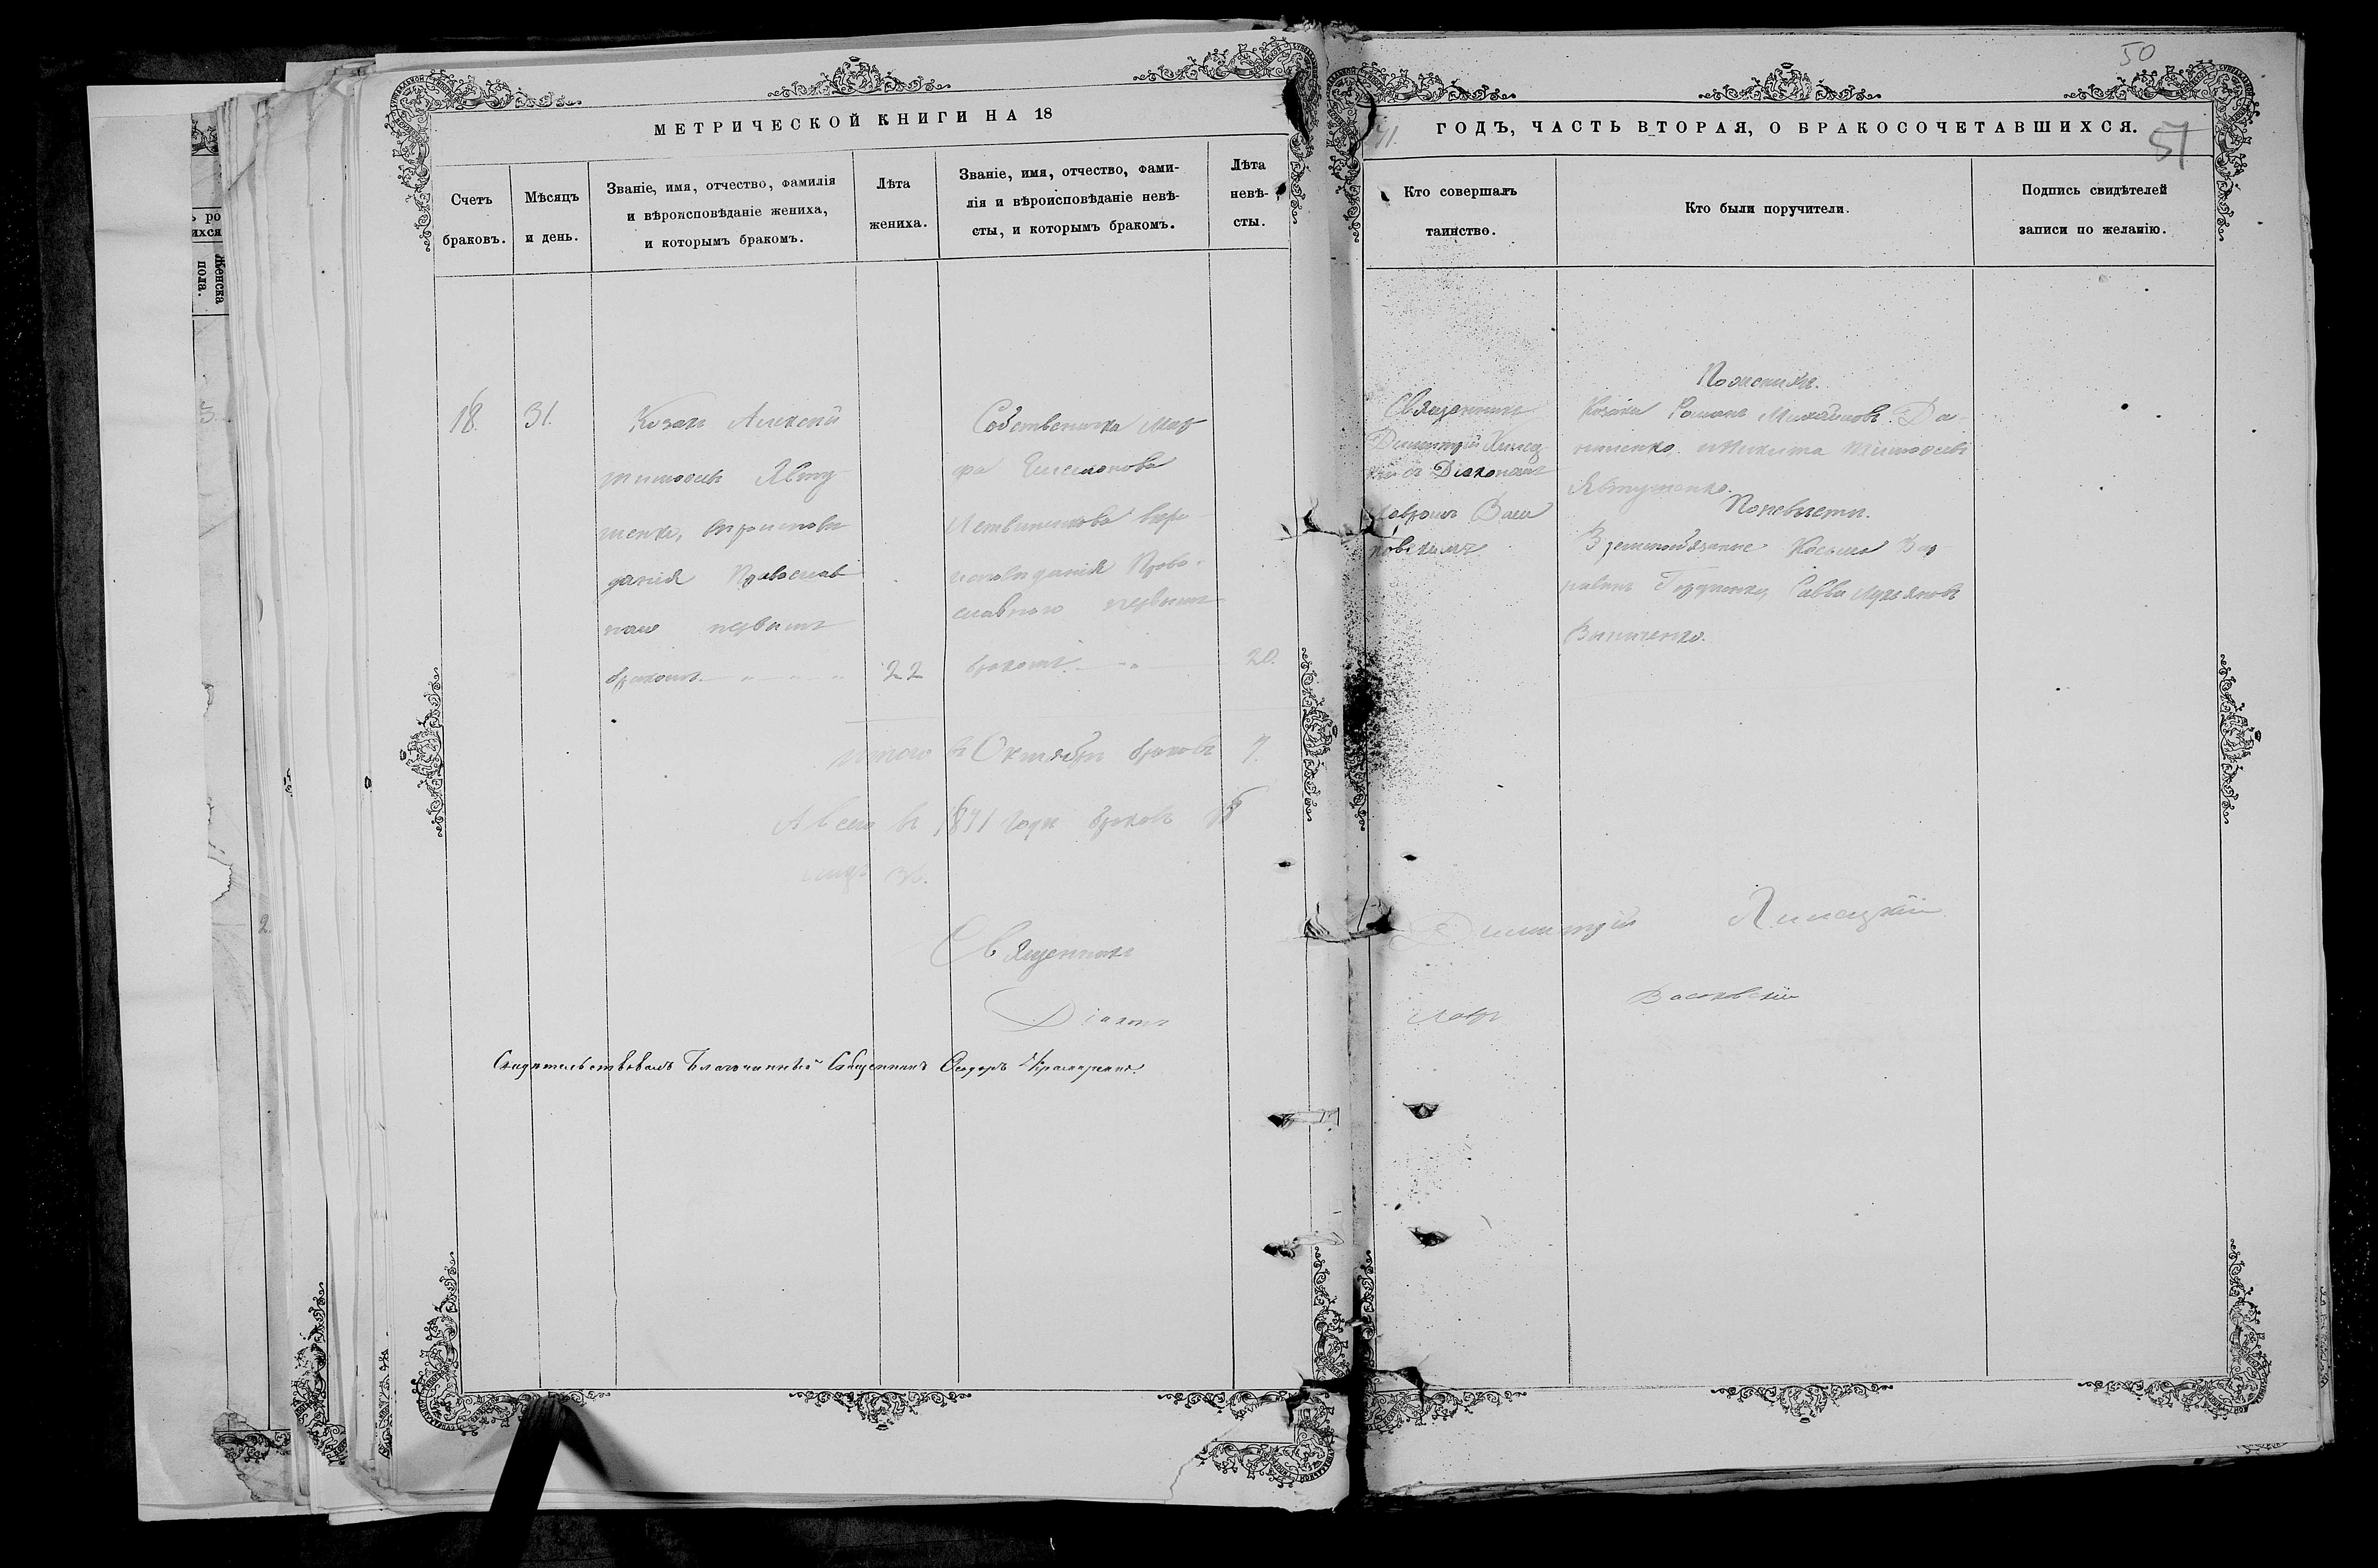 50
МЕТРИЧЕСКОЙ КНИГИ НА 18
71.
ГОДЪ, ЧАСТЬ ВТОРАЯ, О БРАКОСОЧЕТАВШИХСЯ.
51
Счетъ браковъ.
Мѣсяцъ и день.
Званіе, имя, отчество, фамилія
и вѣроисповѣданіе жениха,
и которымъ бракомъ.
Лѣта жениха.
Званіе, имя, отчество, фами-
лія и вѣроисповѣданіе невѣ-
сты, и которымъ бракомъ.
Лѣта
невѣ-
сты.
Кто совершалъ
таинство.
Кто были поручители.
Подпись свидѣтелей
записи по желанію.
18.
31.
Козакъ Алексій
Тимоѳеевъ Явту
шенко, вѣроисповѣ
данія Православ
наго первымъ
бракомъ
22
Собственичка Мар
ѳа
вѣро
исповѣданія Право-
славного первымъ
бракомъ
20.
Священникъ
Димитрій Липец
кій съ Діакономъ
Лавромъ Васи
ковскимъ
По женихѣ.
Козаки Романъ Михайловъ Да
ниленко, и Никита Тимоѳеевъ
Явтушенко.
По невѣстѣ.
Косьма
Савва Лукьяновъ
Винниченко.
Итого въ Октябрѣ браковъ 7.
А всего въ 1871 годѣ браковъ 18
лицъ 36.
Священникъ Димитрій Липецкій
Діаконъ Лавръ Васковскій
Свидѣтельствовалъ Благочинный Священникъ Ѳеодоръ Крамаренко.
ь ро
ихся
Женска
пола.